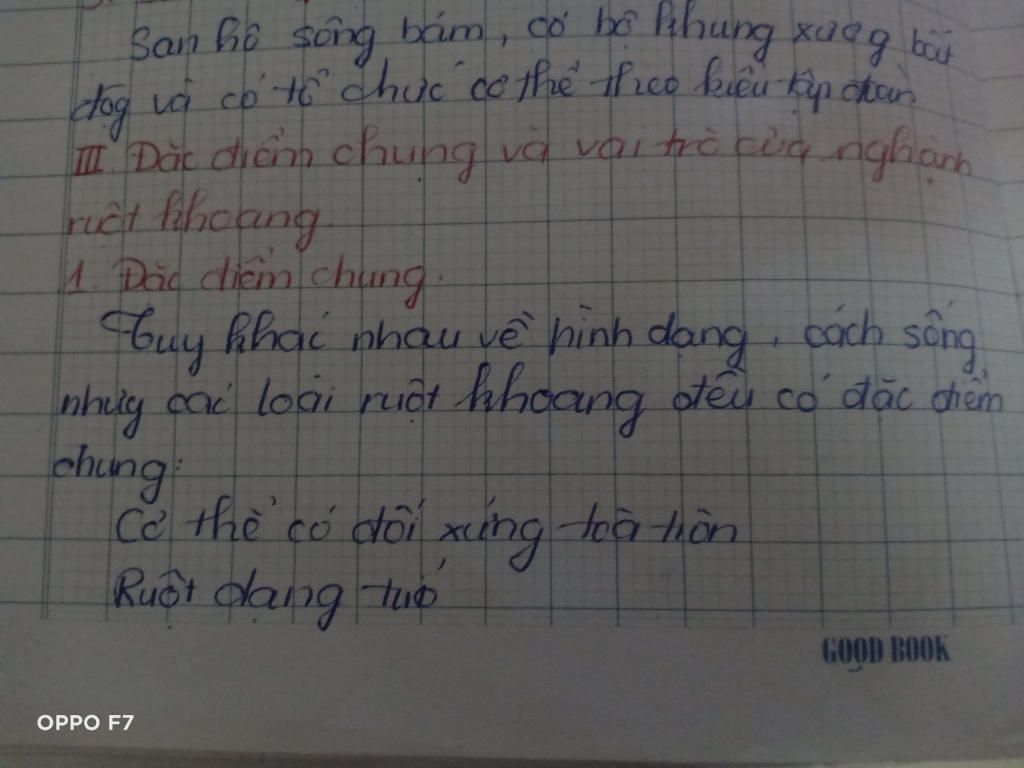 San hô sống bám, có bộ khung xươg bất
độg và có tổ chức cơ thể theo kiểu tập đoàn
III. Đặc điểm chung và vai trò của nghành
ruột khoang
1. Đặc điểm chung.
Tuy khác nhau về hình dạng, cách sống,
nhưg các loài ruột khoang đều có đặc điểm
chung:
Cơ thể có đối xứng toả tròn
Ruột dạng túi
GOOD BOOK
OPPO F7